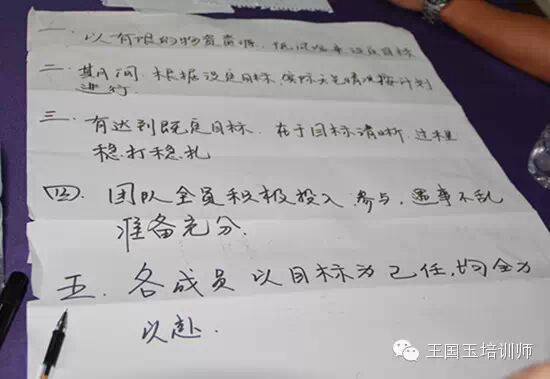 一. 以有限的物资资源, 设定目标
二. 其间, 根据设定目标, 实际 情况按计划
进行
三. 有达到既定目标. 在于目标清晰, 过程
稳打稳扎
四. 团队全员积极投入, 参与, 遇事不乱
准备充分.
五. 各成员以目标为己任, 均全力
以赴.
王国玉培训师